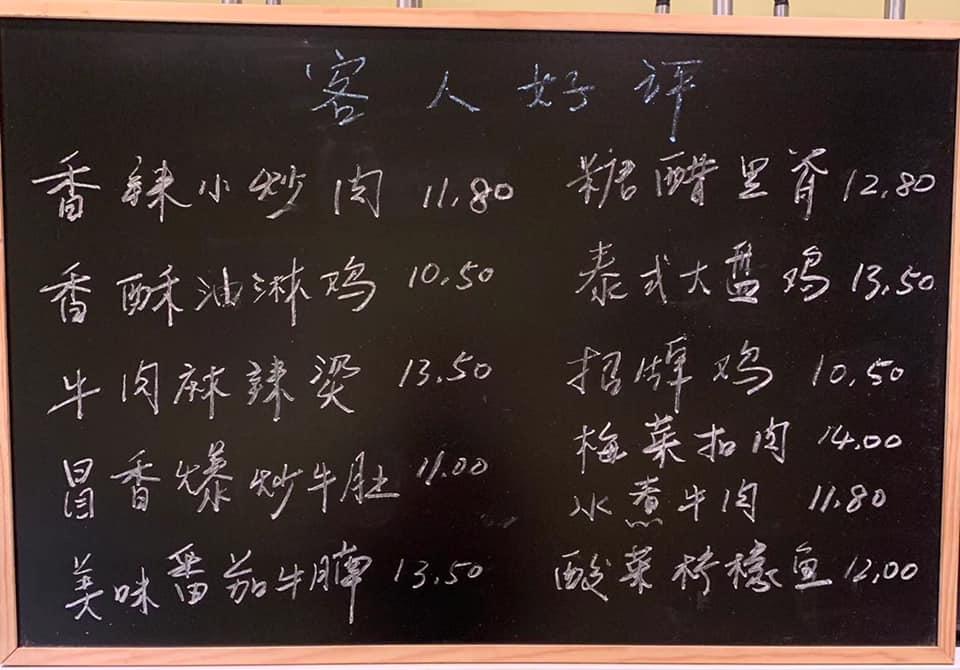 客人好评
香辣小炒肉 11.80
香酥油淋鸡 10.50
牛肉麻辣烫 13.50
冒香爆炒牛肚 11.00
美味番茄牛腩 13.50
糖醋里脊 12.80
泰式大盘鸡 13.50
招牌鸡 10.50
梅菜扣肉 14.00
水煮牛肉 11.80
酸菜柠檬鱼 12.00